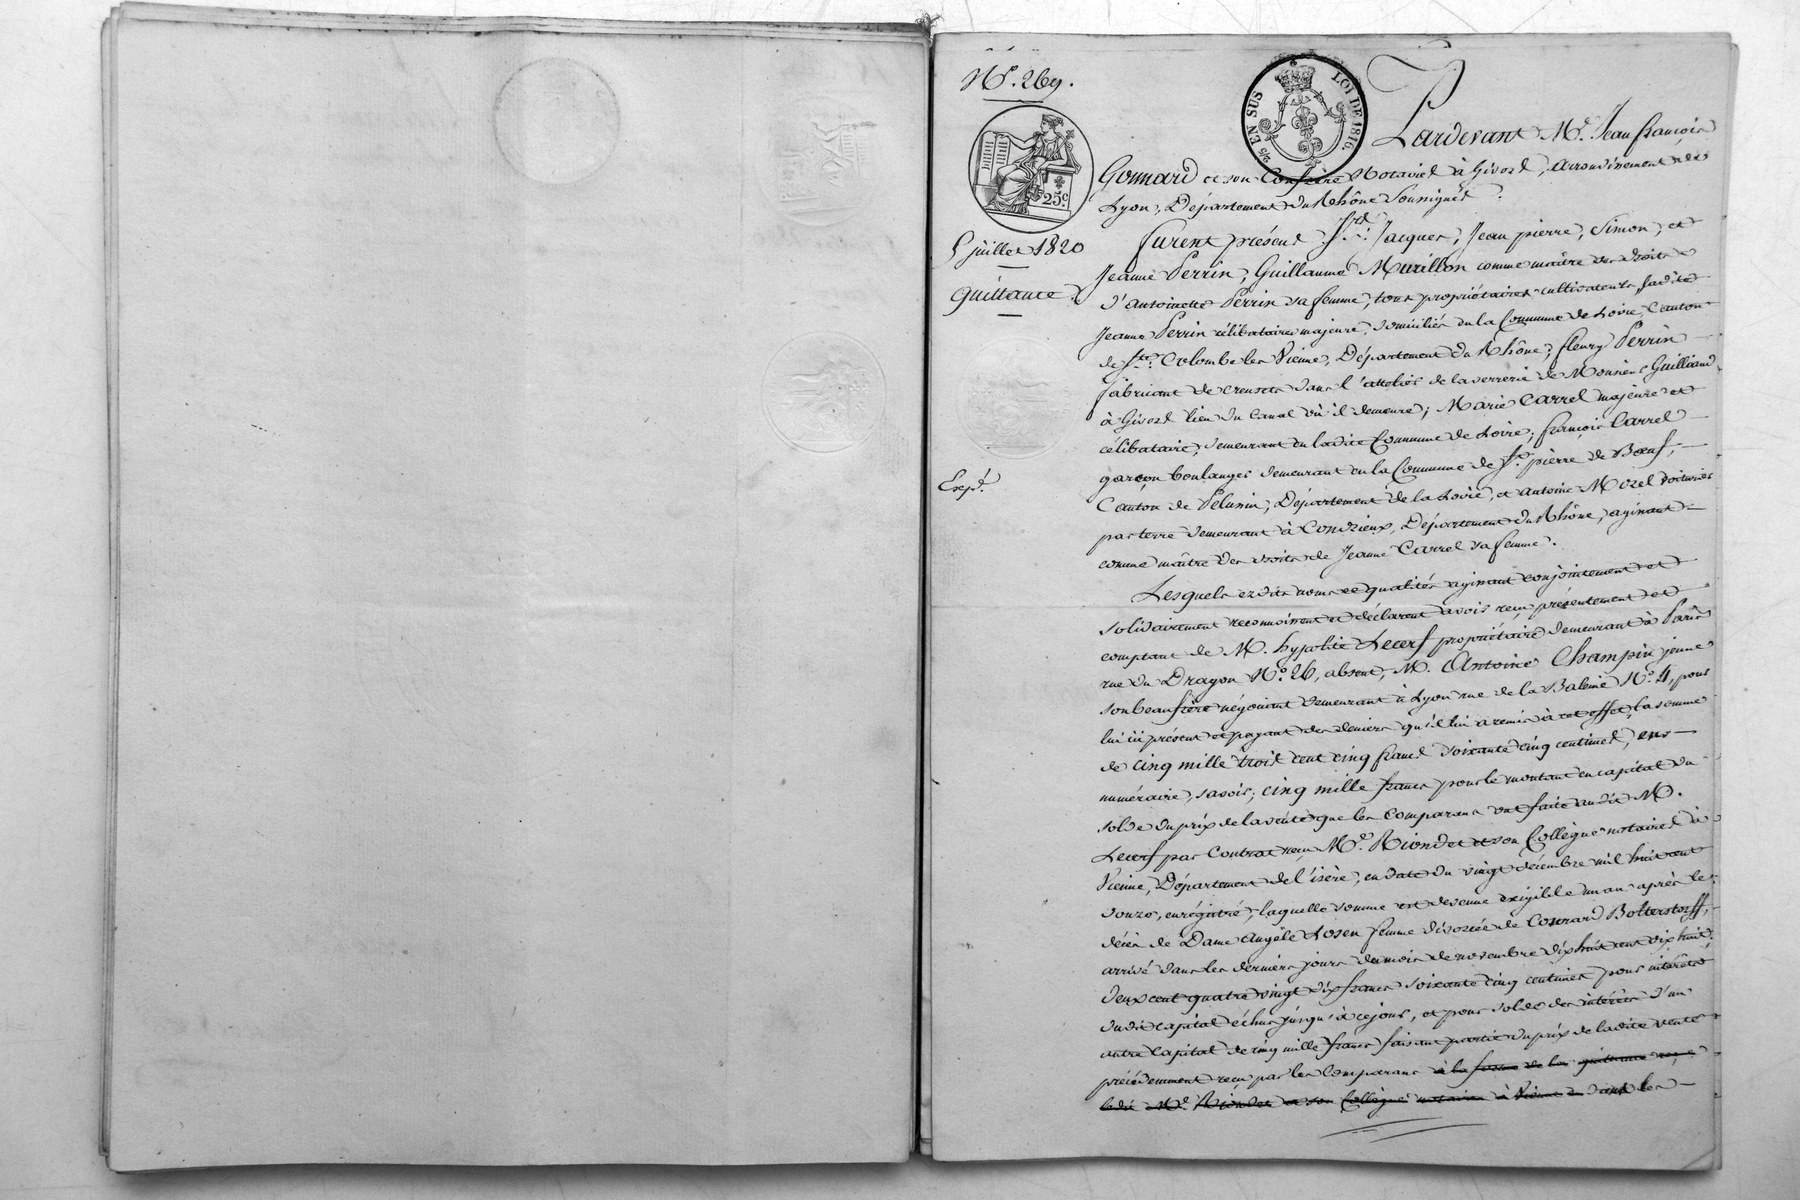 N°. 269.
2/5 EN SUS
LOI DE 1816.
25c
5 juillet 1820
Quittance
Expé.
Pardevant Me. Jean françois
Gonnard et son Confrère Notaires à Givors, arrondissement de
Lyon, Département du Rhône Soussignés.
furent présens Srs. Jacques, Jean pierre, Simon, et
Jeanne Perrin, Guillaume Murillon comme maître des droits
d'antoinette Perrin sa femme, tous propriétaires cultivateurs, ladite
Jeanne Perrin célibataire majeure, domiciliés en la Commune de Loire, Canton
de Ste. Colombe les Vienne, Département du Rhône; fleury Perrin
fabricant de creusets dans l'attelier de la verrerie de Monsieur Guilliand
à Givors lieu du Canal où il demeure; Marie Carrel majeure et
célibataire, demeurant en ladite Commune de Loire; françois Carrel
garçon boulanger demeurant en la Commune de St. pierre de Bœuf,
Canton de Pelussin, Département de la Loire, et antoine Morel voiturier
par terre demeurant à Condrieux, Département du Rhône, agissant
comme maître des droits de Jeanne Carrel sa femme.
Lesquels ezdits noms et qualités agissant conjointement et
solidairement reconnoissent et déclarent avoir reçu présentement et
comptant de M. hypolite Lecerf propriétaire demeurant à Paris
rue du Dragon N°. 26, absent, M. Antoine Champin jeune
son beaufrère négociant demeurant à Lyon rue de la Baleine N°. 4, pour
lui ici présent et payant des deniers qu'il lui a remis à cet effet, la somme
de cinq mille trois cent cinq francs soixante cinq centimes, en
numéraire, savoir; cinq mille francs pour le montant en capital du
solde du prix de la vente que les Comparans ont faite audit M.
Lecerf par Contrat reçu Me. Riondet et son Collègue notaires à
Vienne, Département de l'isère, en date du vingt décembre mil huit cent
douze, enrégistré; laquelle somme est devenue exigible un an après le
décès de Dame angèle Losen femme divorcée de Conrard Bolterstorff,
arrivé dans les derniers jours du mois de novembre dix huit cent dix huit;
deux cent quatre vingt dix francs soixante cinq centimes pour intérêts
dudit capital échus jusqu'à ce jour, et pour solde des intérêts d'un
autre Capital de cinq mille francs faisant partie du prix de ladite vente
précédemment reçu par les Comparans à la forme de la quittance reçue
ledit Me. Riondet et son Collègue notaires à Vienne en dans les